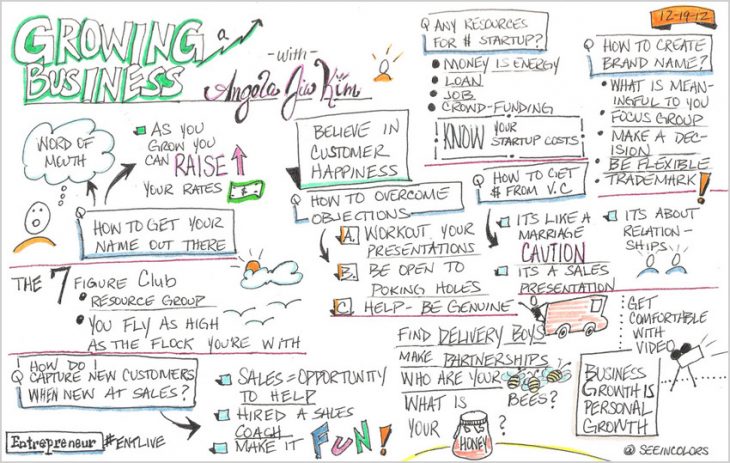 GROWING a
BUSINESS
-with-
Angela Jia Kim
12-19-12
WORD OF
MOUTH
AS YOU
GROW YOU
CAN RAISE
YOUR RATES
$
HOW TO GET YOUR
NAME OUT THERE
THE 7 FIGURE Club
• RESOURCE GROUP
• YOU FLY AS HIGH
AS THE FLOCK YOU'RE WITH
HOW DO I
Q CAPTURE NEW CUSTOMERS
WHEN NEW AT SALES?
SALES=OPPORTUNITY
TO HELP
HIRED A SALES
COACH
MAKE IT FUN!
Entrepreneur #ENTLIVE
BELIEVE IN
CUSTOMER
HAPPINESS
Q HOW TO OVERCOME
OBJECTIONS
A. WORKOUT YOUR
PRESENTATIONS
B. BE OPEN TO
POKING HOLES
C. HELP-BE GENUINE
Q ANY RESOURCES
FOR $ STARTUP?
• MONEY IS ENERGY
• LOAN
• JOB
• CROWD-FUNDING
! KNOW YOUR
STARTUP COSTS!
Q HOW TO GET
$ FROM V.C
ITS LIKE A
MARRIAGE
CAUTION
ITS A SALES
PRESENTATION
ITS ABOUT
RELATION-
SHIPS
Q HOW TO CREATE
BRAND NAME?
• WHAT IS MEAN-
INGFUL TO YOU
• FOCUS GROUP
• MAKE A DEC-
ISION
• BE FLEXIBLE
• TRADEMARK!
FIND DELIVERY BOYS
MAKE PARTNERSHIPS
WHO ARE YOUR
BEES?
WHAT IS
YOUR HONEY ?
GET
COMFORTABLE
WITH
VIDEO
BUSINESS
GROWTH IS
PERSONAL
GROWTH
@SEEINCOLORS